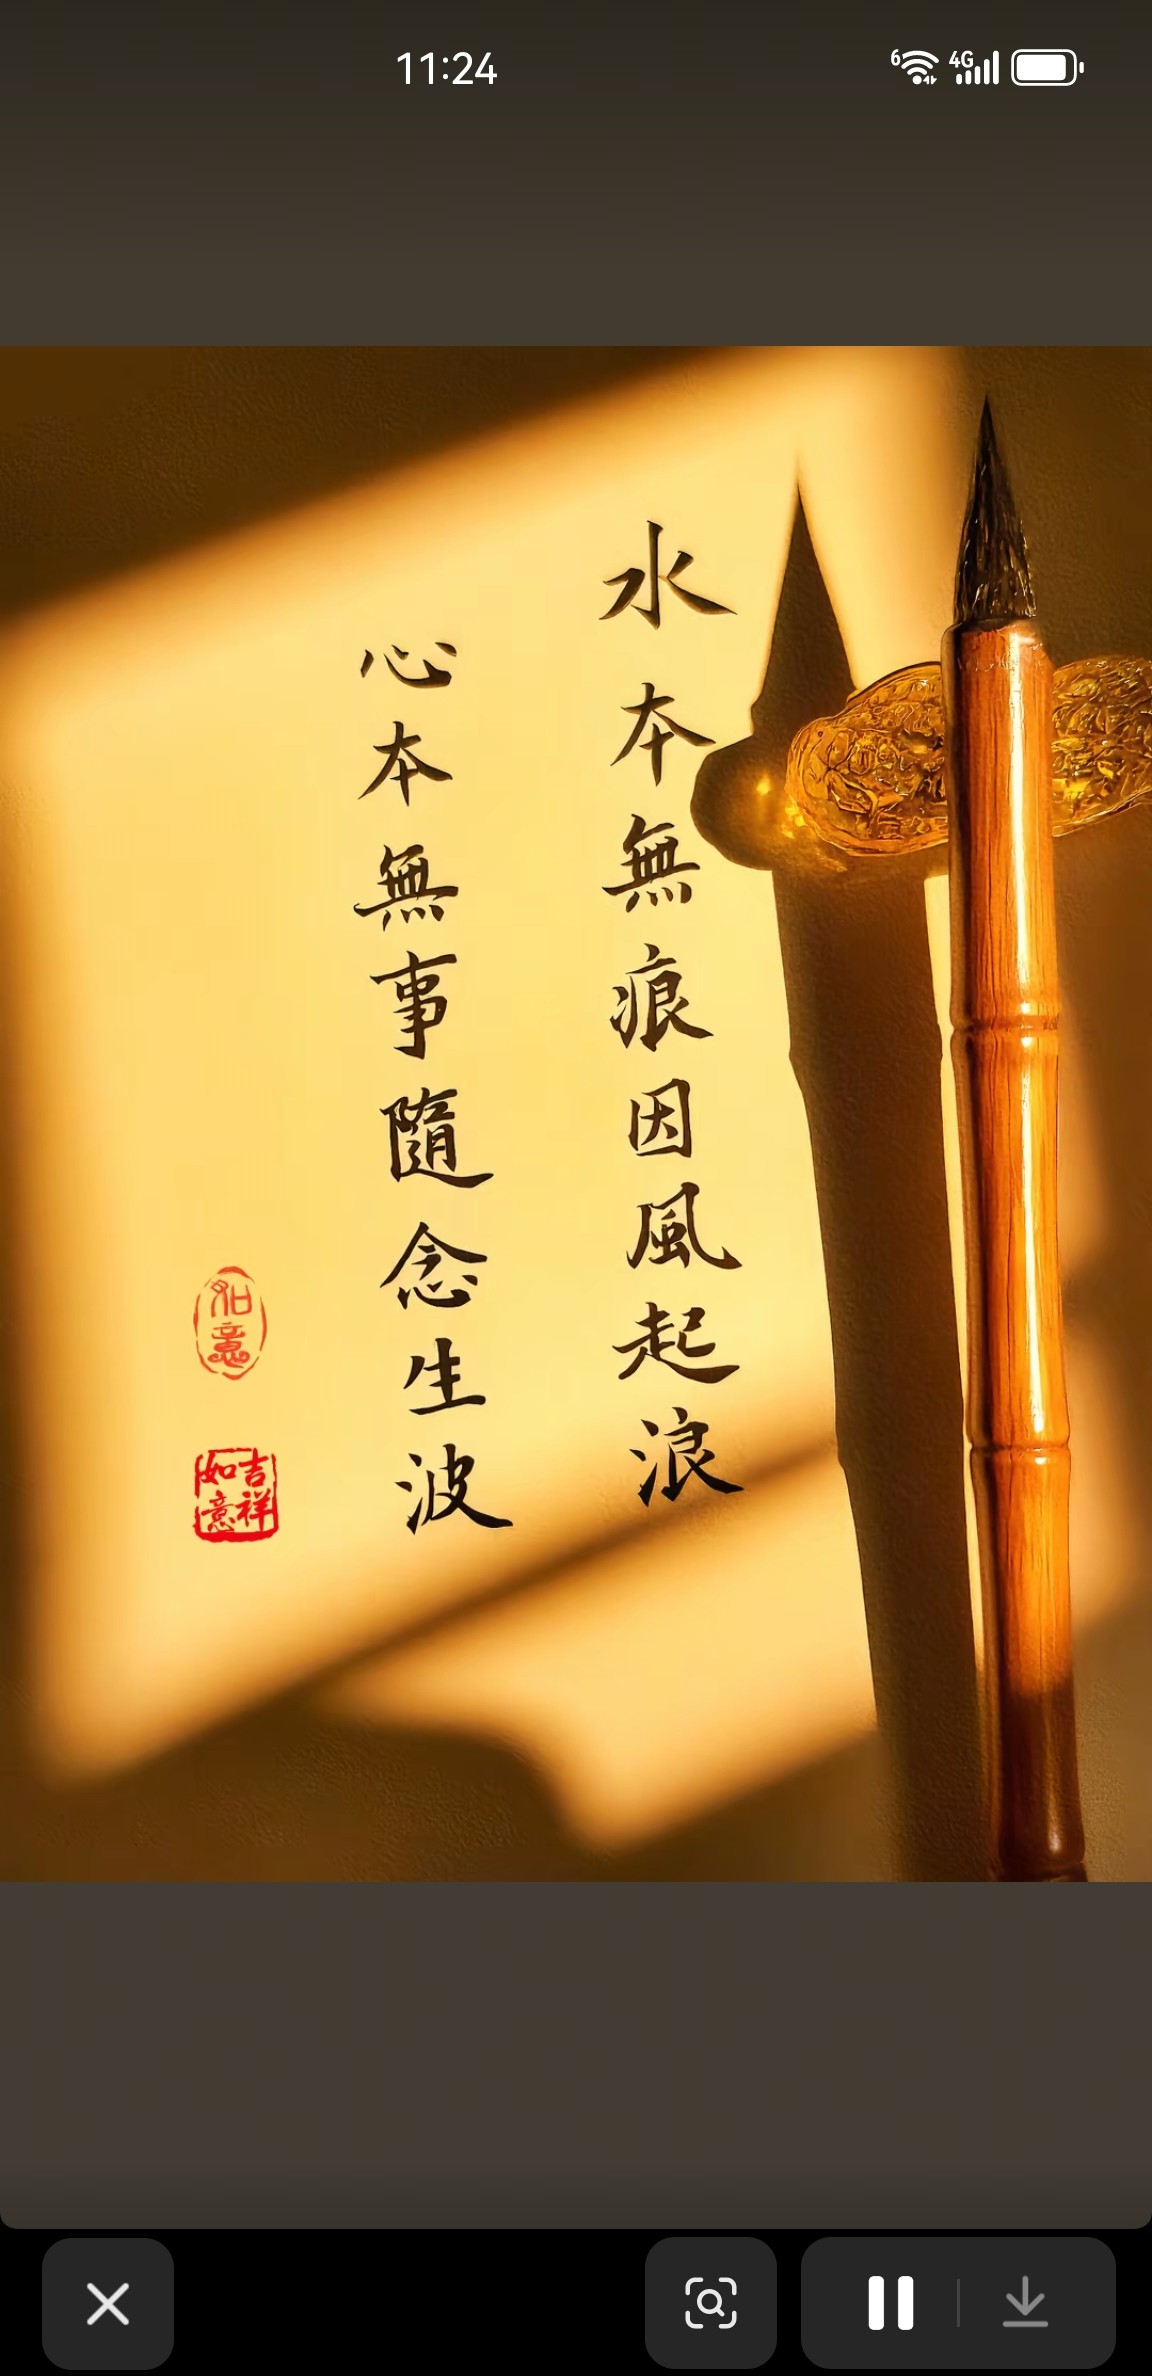 11:24
6
4G
水本無痕因風起浪
心本無事隨念生波
如意
吉祥如意